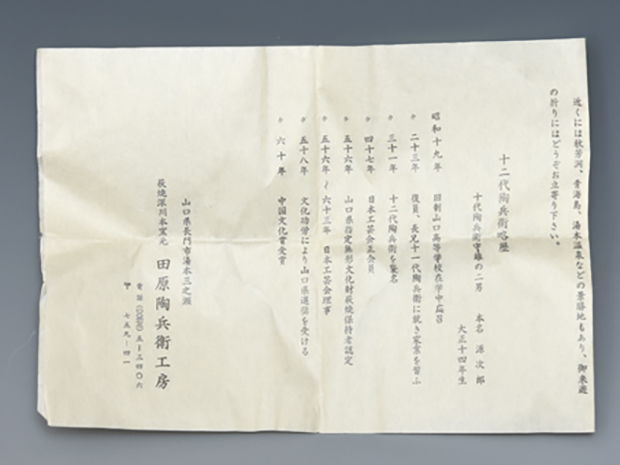 近くには秋芳洞、青海島、湯本温泉などの景勝地もあり、御来遊
の折りにはどうぞお立寄り下さい。
十二代陶兵衛略歴
十代陶兵衛守雄の二男 本名 源次郎
大正十四年生
昭和十九年 旧制山口高等学校在学中応召
〃 二十三年 復員、長兄十一代陶兵衛に就き家業を習ふ
〃 三十一年 十二代陶兵衛を襲名
〃 四十七年 日本工芸会正会員
〃 五十六年 山口県指定無形文化財萩焼保持者認定
〃 五十六年〜六十三年 日本工芸会理事
〃 五十八年 文化功労により山口県選奨を受ける
〃 六十年 中国文化賞受賞
山口県長門市湯本三之瀬
萩焼深川本窯元 田原陶兵衛工房
電話 五-三四〇六
〒 七五九-四一